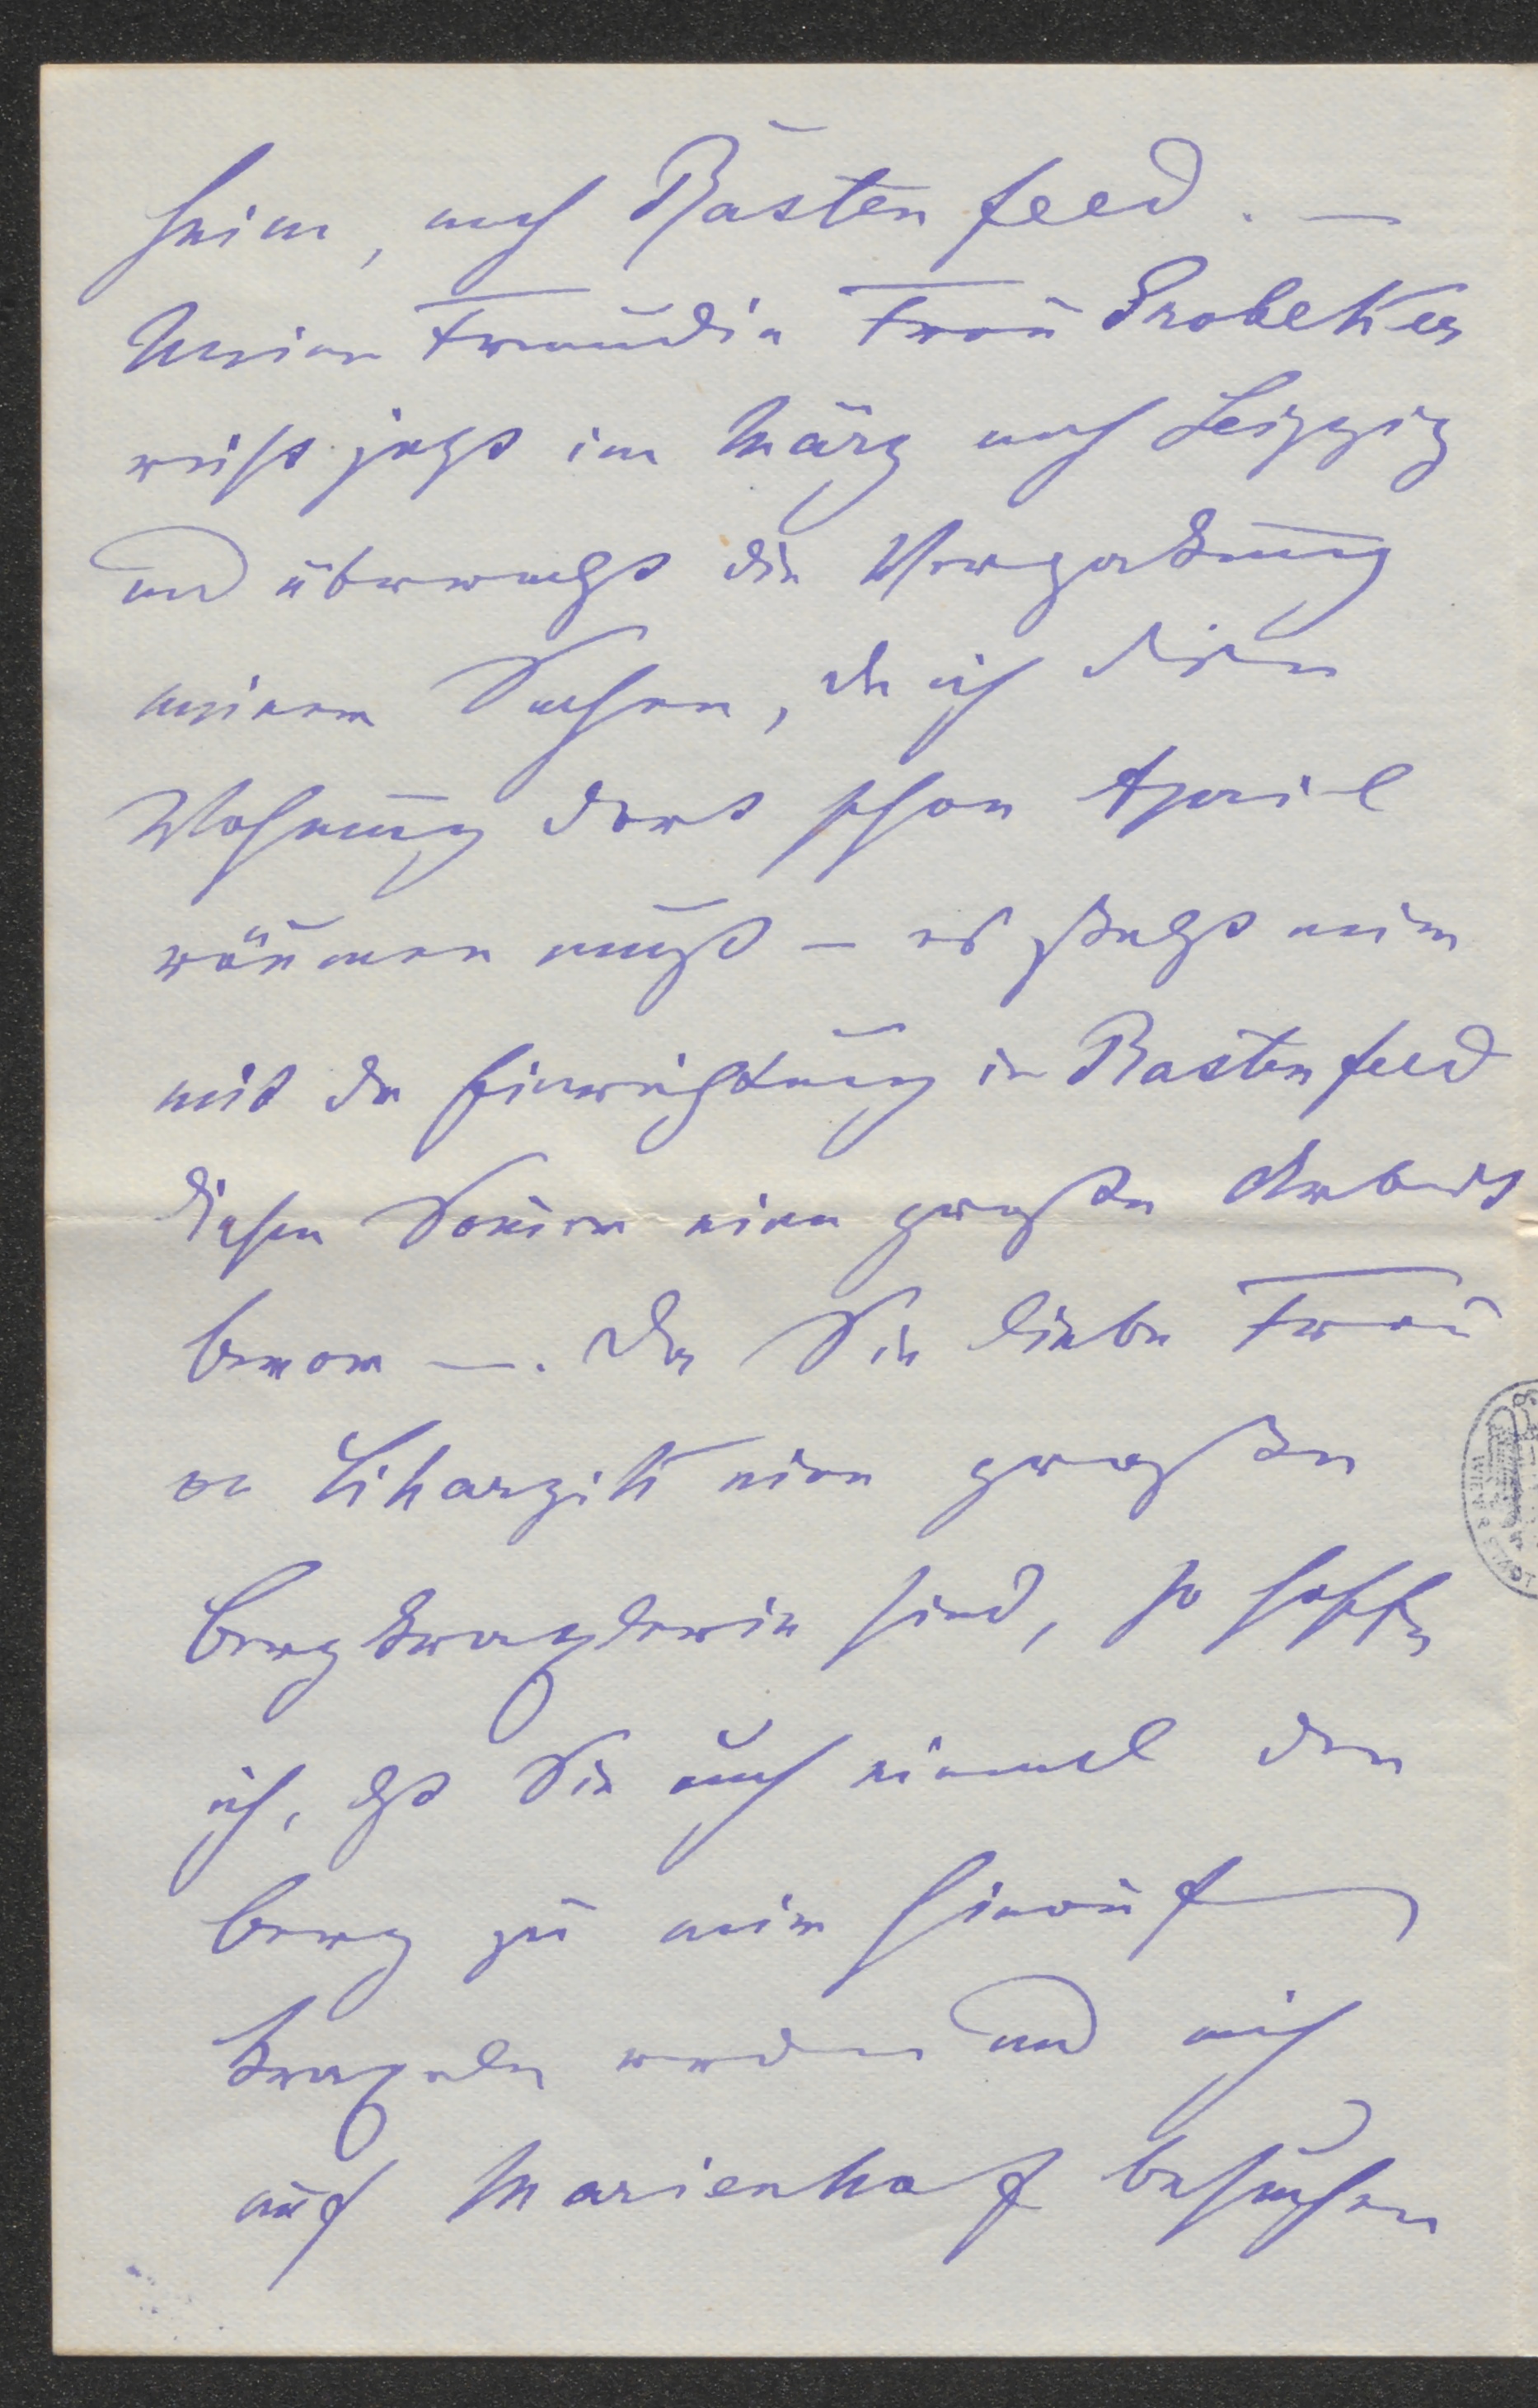 heim, nach Rastenfeld. —
Meine Freundin Frau Grobecker
reist jetzt im März nach Leipzig
und überwacht die Verpackung
meiner Sachen, da ich diese
Wohnung dort schon April
räumen muß — es steht mir
mit der Einrichtung in Rastenfeld
diesen Somer eine große Arbeit
bevor —. Da Sie liebe Frau
v Liharzik eine große
Bergkraxlerin sind, so hoffe
ich, daß Sie auch einmal den
Berg zu mir hinauf
kraxeln werden und mich
auf Marienhof besuchen